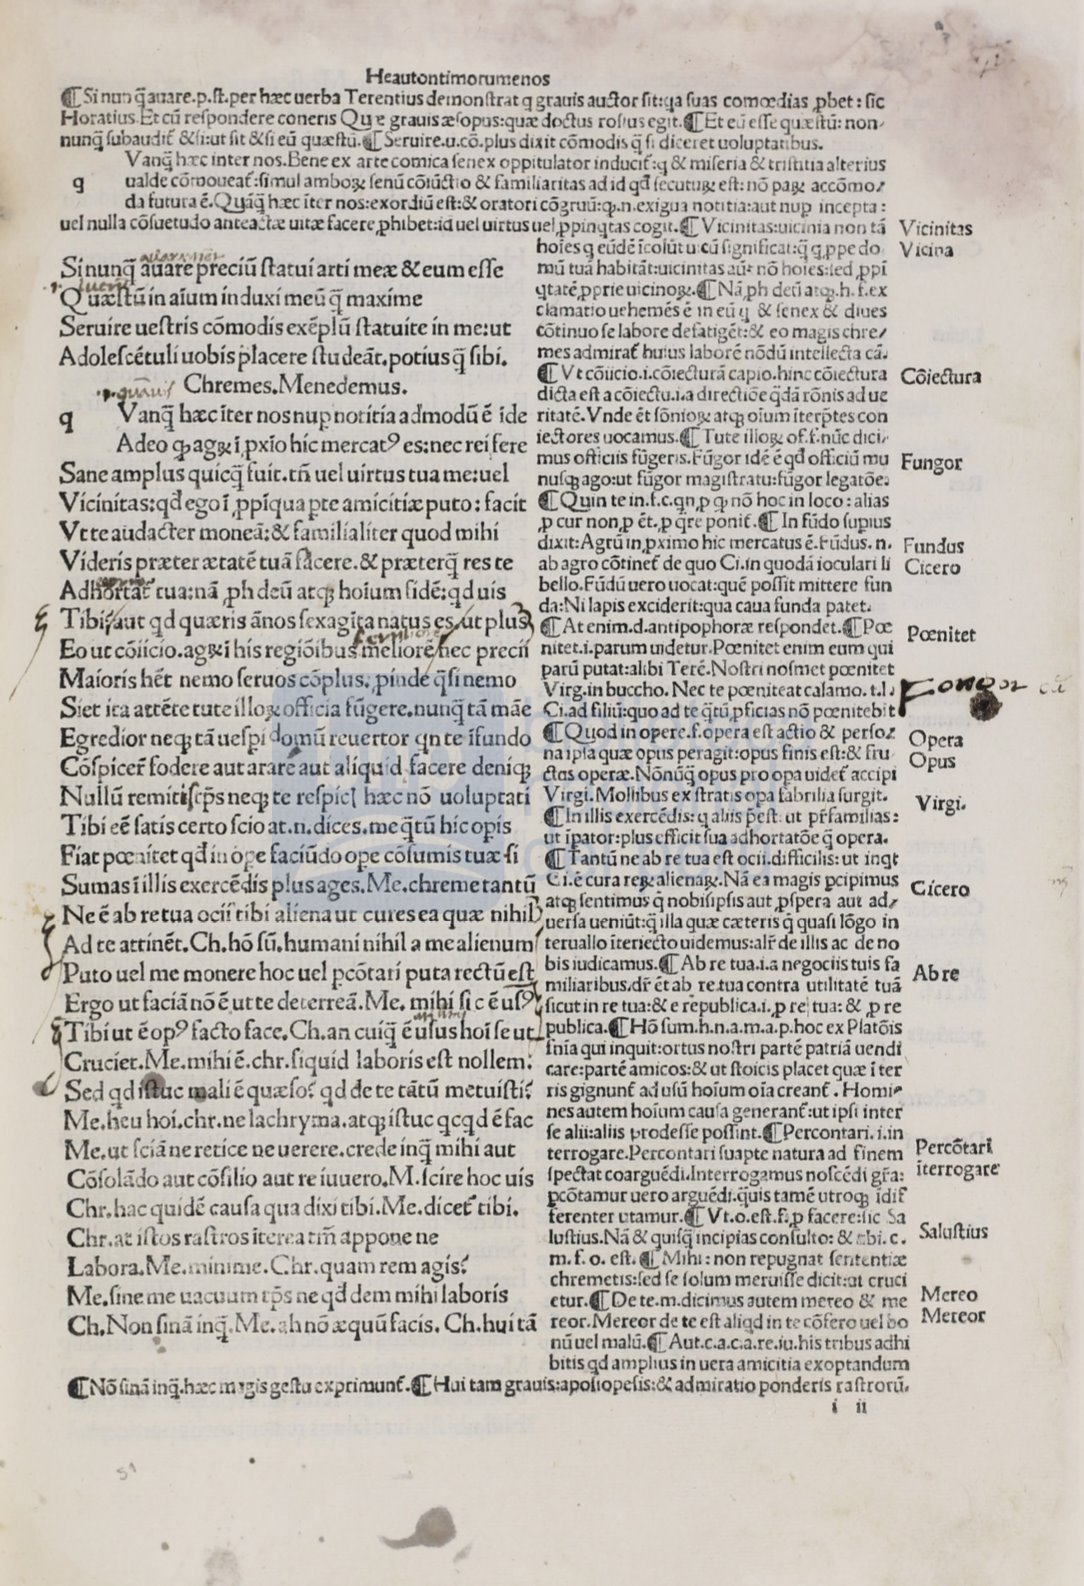 Heautontimorumenos
¶Si nunq̃ auare.p.st.per hæc uerba Terentius demonstrat q grauis auctor sit:qa suas comœdias ꝓbet: sic
Horatius.Et cũ respondere coneris Quæ grauis æsopus:quæ doctus rosius egit.¶Et eũ esse quæstũ: non
nunq̃ subaudit̃ &si:ut sit &si eũ quæstũ.¶Seruire.u.cõ.plus dixit cõmodis q̃ si diceret uoluptatibus.
Vanq̃ hæc inter nos.Bene ex arte comica senex oppitulator inducit̃:q & miseria & tristitia alterius
q ualde cõmoueat̃:simul amboꝝ senũ cõiũctio & familiaritas ad id qd̃ secutuꝝ est: nõ paꝝ accõmo/
da futura ẽ.Quãq̃ hæc ĩter nos:exordiũ est:& oratori cõgruũ:ꝙ.n.exigua notitia:aut nup incepta:
uel nulla cõsuetudo anteactæ uitæ facere ꝓhibet:id uel uirtus uel ꝓpinqtas cogit.¶Vicinitas:uicinia non tã
Si nunq̃ auare preciũ statui arti meæ & eum esse
Quæstũ in aĩum induxi meũ q̃ maxime
Seruire uestris cõmodis exẽplũ statuite in me:ut
Adolescẽtuli uobis placere studeãt.potius q̃ sibi.
Chremes.Menedemus.
q Vanq̃ hæc ĩter nos nup notitia admodũ ẽ ĩde
Adeo ꝙ agꝝ ĩ ꝓxĩo hic mercatꝰ es:nec rei fere
Sane amplus quicq̃ fuit.tñ uel uirtus tua me:uel
Vicinitas:qd̃ ego ĩ ꝓpĩqua pte amicitiæ puto: facit
Vt te audacter moneã:& familialiter quod mihi
Videris præter ætatẽ tuã facere.& præterq̃ res te
Adhortat̃ tua:nã ꝓh deũ atqꝫ hoĩum fidẽ:qd uis
Tibi/aut qd quæris ãnos sexagĩta natus es/ut plus
Eo ut cõiicio.agꝝ ĩ his regiõibus meliorẽ/nec precii
Maioris hẽt nemo seruos cõplus.ꝓinde q̃si nemo
Siet ita attẽte tute illoꝝ officia fũgere.nunq̃ tã mãe
Egredior neqꝫ tã uespi domũ reuertor qn te ĩfundo
Cõspicer̃ fodere aut arare aut aliquid facere deniqꝫ
Nullũ remitis tp̃s neqꝫ te respicĩ hæc nõ uoluptati
Tibi eẽ satis certo scio at.n.dices.me q̃tũ hic opis
Fiat pœnitet qd̃ in oꝑe faciũdo ope cõsumis tuæ si
Sumas ĩ illis exercẽdis plus ages.Me.chreme tantũ
Ne ẽ ab re tua ocii tibi aliena ut cures ea quæ nihil
Ad te attinẽt.Ch.hõ sũ.humani nihil a me alienum
Puto uel me monere hoc uel pcõtari puta rectũ est
Ergo ut faciã nõ ẽ ut te deterreã.Me. mihi sic ẽ usꝰ
Tibi ut ẽ opꝰ facto face.Ch.an cuiq̃ ẽ usus hoĩ se ut
Cruciet.Me.mihi ẽ.chr.siquid laboris est nollem:
Sed qd istuc mali ẽ quæso? qd de te tãtũ metuisti?
Me.heu hoi.chr.ne lachryma.atqꝫ istuc qcqd ẽ fac
Me.ut sciã ne retice ne uerere.crede inq̃ mihi aut
Cõsolãdo aut cõsilio aut re iuuero.M.scire hoc uis
Chr.hac quidẽ causa qua dixi tibi.Me.dicet̃ tibi.
Chr.at istos rastros ĩterea tm̃ appone ne
Labora.Me.minime.Chr.quam rem agis?
Me.sine me uacuum tp̃s ne qd̃ dem mihi laboris
Ch.Non sinã inq̃.Me.ah nõ æquũ facis. Ch.hui tã
hoĩes q eũdẽ ĩcolũt uicũ significat:q̃ q ꝓpe do
mũ tuã habitãt:uicinitas aũt nõ hoĩes:sed ꝓpĩ
qtatẽ ꝓprie uicinoꝝ.¶Nã ꝓh deũ atqꝫ.h.f.ex
clamatio uehemẽs ẽ in eũ q & senex & diues
cõtinuo se labore defatigẽt:& eo magis chre/
mes admirat̃ huius laborẽ nõdũ intellecta cã.
¶Vt cõiicio.i.cõiecturã capio.hinc cõiectura
dicta est a cõiectu.i.a directiõe q̃dã rõnis ad ue
ritatẽ.Vnde ẽt sõnioꝝ atqꝫ oĩum ĩterp̃tes con
iectores uocamus.¶Tute illoꝝ of.f.nũc dici/
mus officiis fũgeris.Fũgor idẽ ẽ qd̃ officiũ mu
nusqꝫ ago:ut fũgor magistratu:fũgor legatõe.
¶Quin te in.f.c.qn ꝓ ꝙ nõ hoc in loco: alias
ꝓ cur non ꝓ ẽt. ꝓ q̃re ponit̃.¶In fũdo supius
dixit:Agrũ in ꝓximo hic mercatus ẽ.Fũdus. n.
ab agro cõtinet̃ de quo Ci.in quodã ioculari li
bello.Fũdũ uero uocat:quẽ possit mittere fun
da:Ni lapis exciderit:qua caua funda patet.
¶At enim.d.antipophoræ respondet.¶Pœ
nitet.i.parum uidetur.Pœnitet enim eum qui
parũ putat:alibi Terẽ.Nostri nosmet pœnitet
Virg.in buccho. Nec te pœniteat calamo.t.l.
Ci.ad filiũ:quo ad te q̃tũ ꝓficias nõ pœnitebit
¶Quod in opere.f.opera est actio & perso/
na ipsa quæ opus peragit:opus finis est:& fru
ctus operæ.Nõnũq̃ opus pro opa uidet̃ accipi
Virgi.Mollibus ex stratis opa fabrilia surgit.
¶In illis exercẽdis: q aliis p̃est: ut pr̃familias:
ut ĩpator:plus efficit sua adhortatõe q̃ opera.
¶Tantũ ne ab re tua est ocii.difficilis: ut inqt
Ci.ẽ cura reꝝ alienaꝝ.Nã ea magis pcipimus
atqꝫ sentimus q̃ nobisipsis aut ꝓspera aut ad/
uersa ueniũt:q̃ illa quæ cæteris q̃ quasi lõgo in
teruallo ĩteriecto uidemus:alr̃ de illis ac de no
bis iudicamus.¶Ab re tua.i.a negociis tuis fa
miliaribus.dr̃ ẽt ab re tua contra utilitatẽ tuã
sicut in re tua:& e republica.i.ꝓ re tua: & ꝓ re
publica.¶Hõ sum.h.n.a.m.a.p.hoc ex Platõis
sñia qui inquit:ortus nostri partẽ patriã uendi
care:partẽ amicos:& ut stoicis placet quæ ĩ ter
ris gignunt̃ ad usũ hoĩum oĩa creant̃. Homi
nes autem hoĩum causa generant̃:ut ipsi inter
se alii:aliis prodesse possint.¶Percontari.i.in
terrogare.Percontari suapte natura ad finem
spectat coarguẽdi.Interrogamus noscẽdi gr̃a:
pcõtamur uero arguẽdi.q̃uis tamẽ utroqꝫ ĩdif
ferenter utamur.¶Vt.o.est.f.ꝓ facere:sic Sa
lustius.Nã & quisq̃ incipias consulto: & ubi.c.
m.f.o.est.¶Mihi: non repugnat sententiæ
chremetis:sed se solum meruisse dicit:ut cruci
etur.¶De te.m.dicimus autem mereo & me
reor.Mereor de te est aliqd in te cõfero uel bo
nũ uel malũ.¶Aut.c.a.c.a.re.iu.his tribus adhi
bitis qd amplius in uera amicitia exoptandum
Vicinitas
Vicina
Cõiectura
Fungor
Fundus
Cicero
Pœnitet
Opera
Opus
Virgi.
Cicero
Ab re
Percõtari
ĩterrogare
Salustius
Mereo
Mereor
¶Nõ sinã inq̃.hæc magis gestu exprimunt̃.¶Hui tam grauis:aposiopesis:& admiratio ponderis rastrorũ.
i ii